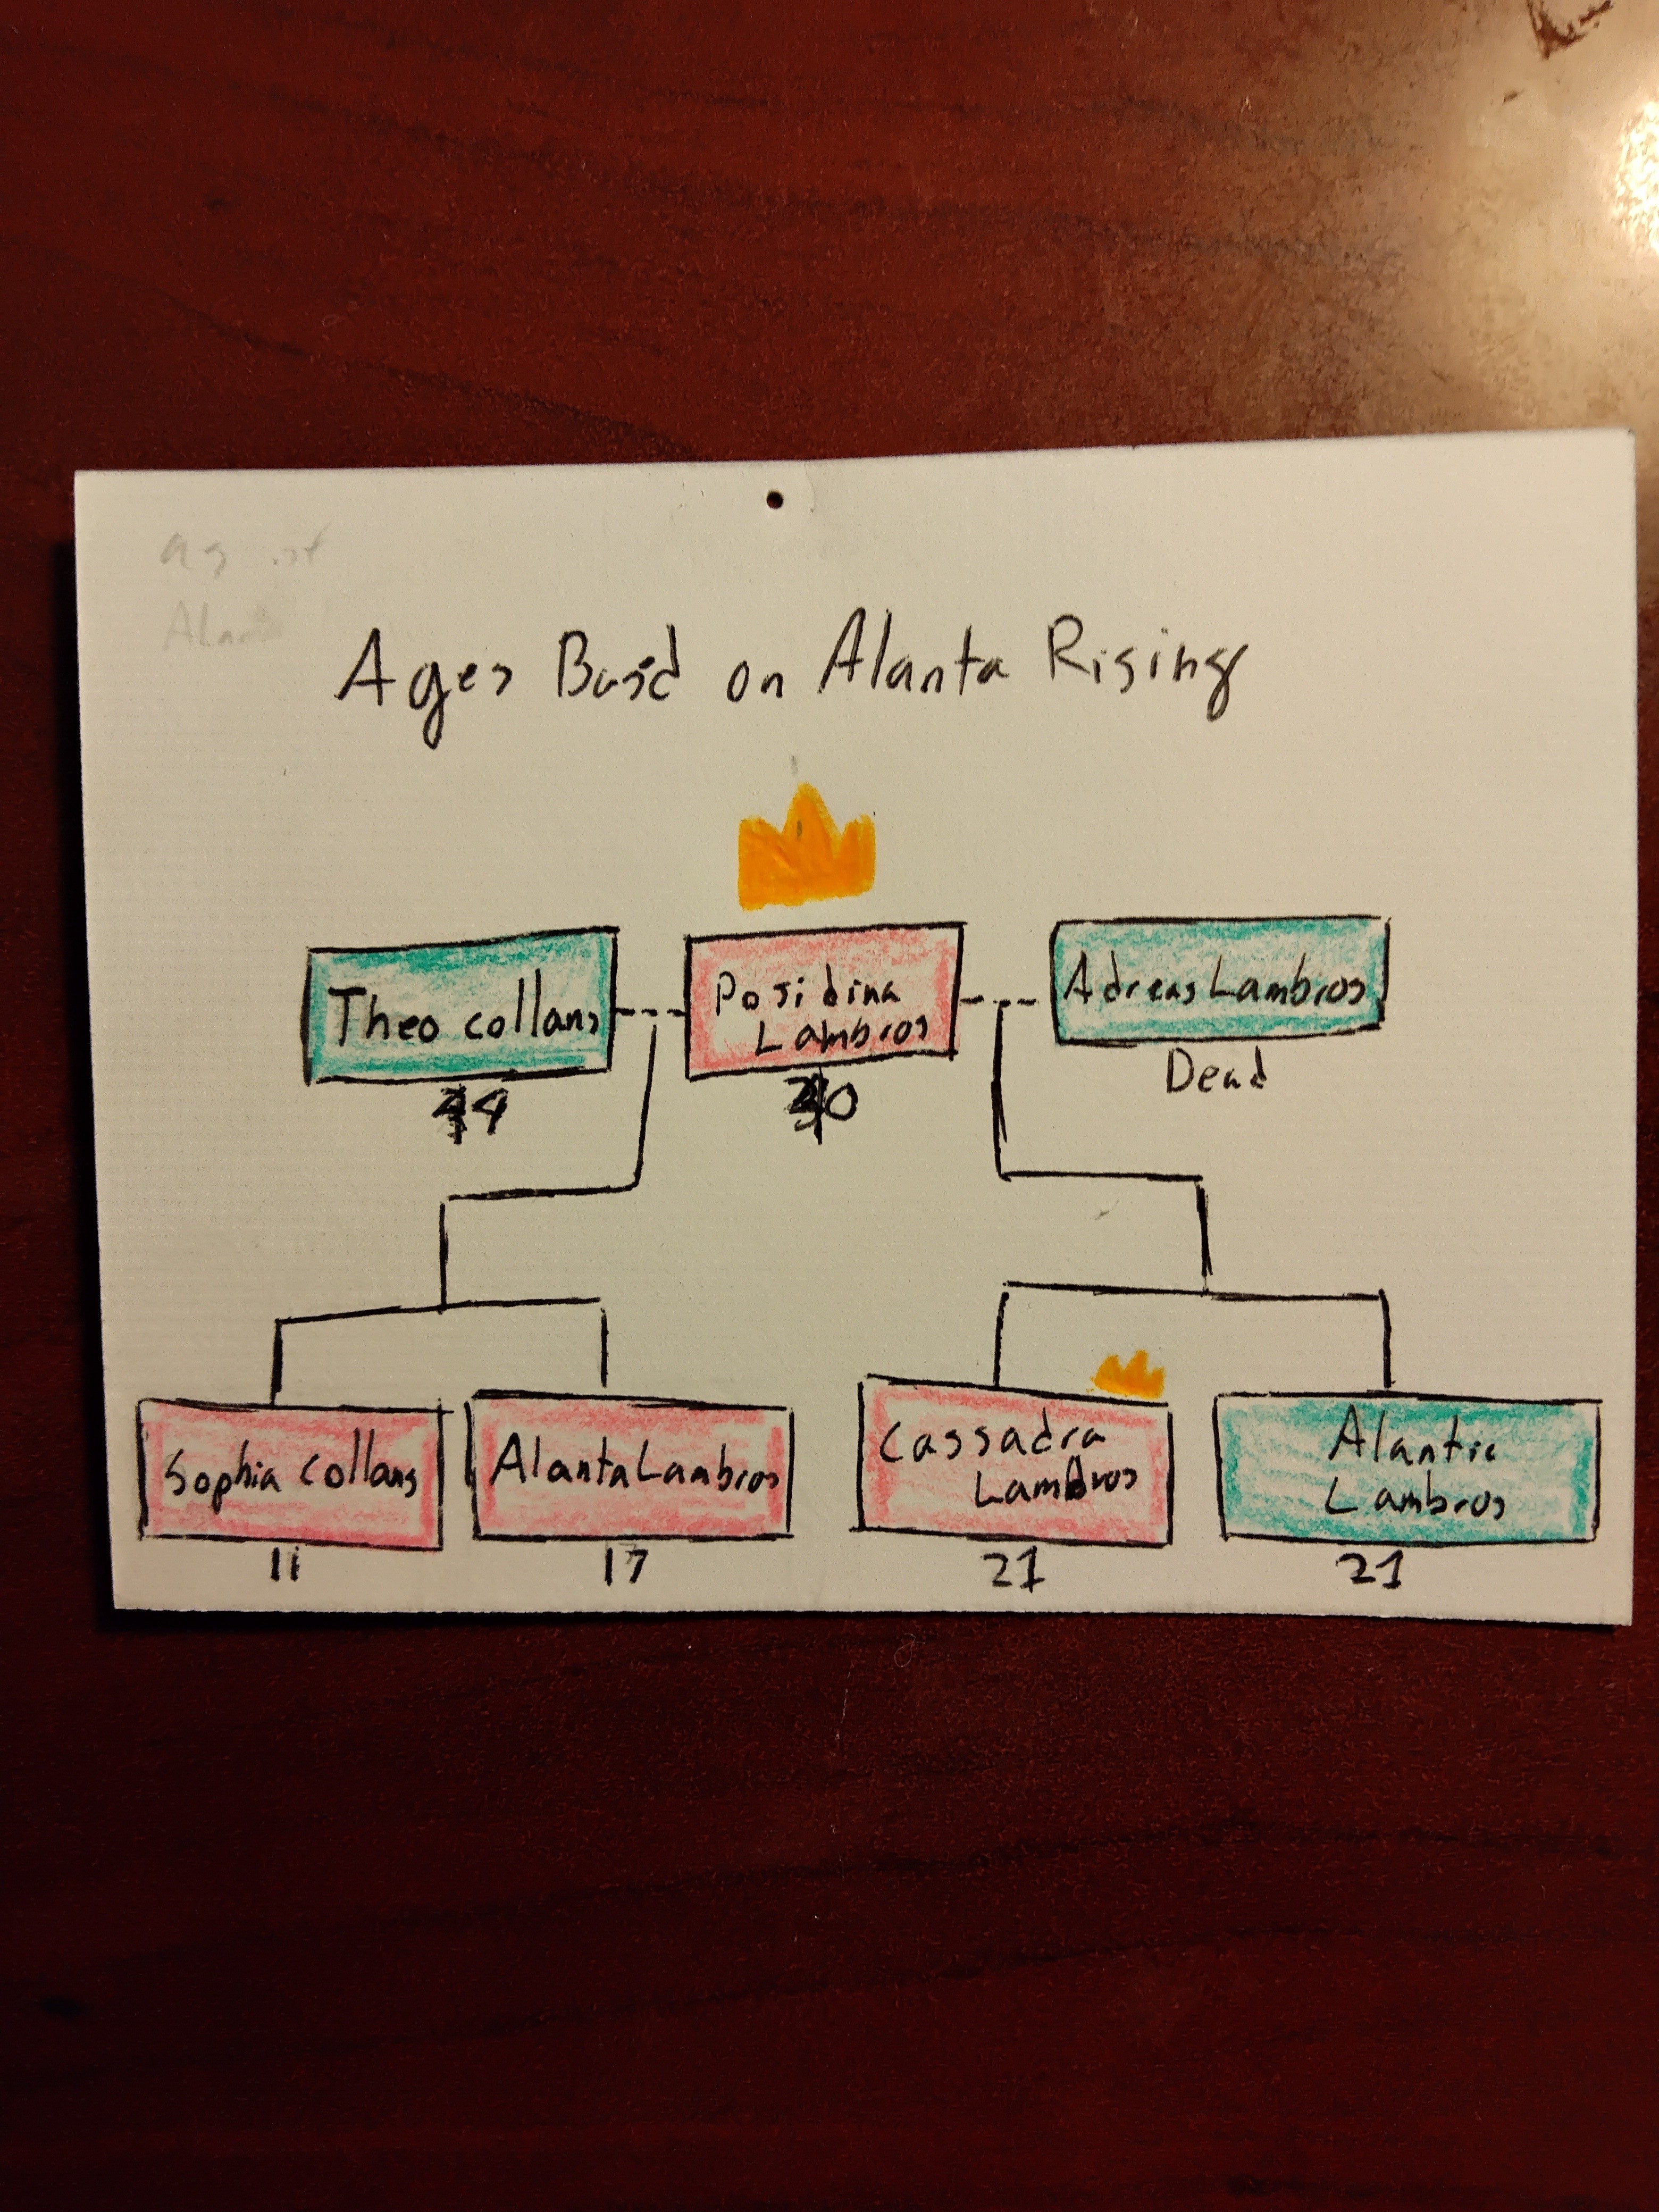 Ages Based on Alanta Rising
Theo collans
Posidina
Lambros
Adreas Lambros
44
40
Dead
Sophia collans
Alanta Lambros
Cassadra
Lambros
Alantic
Lambros
11
17
21
21